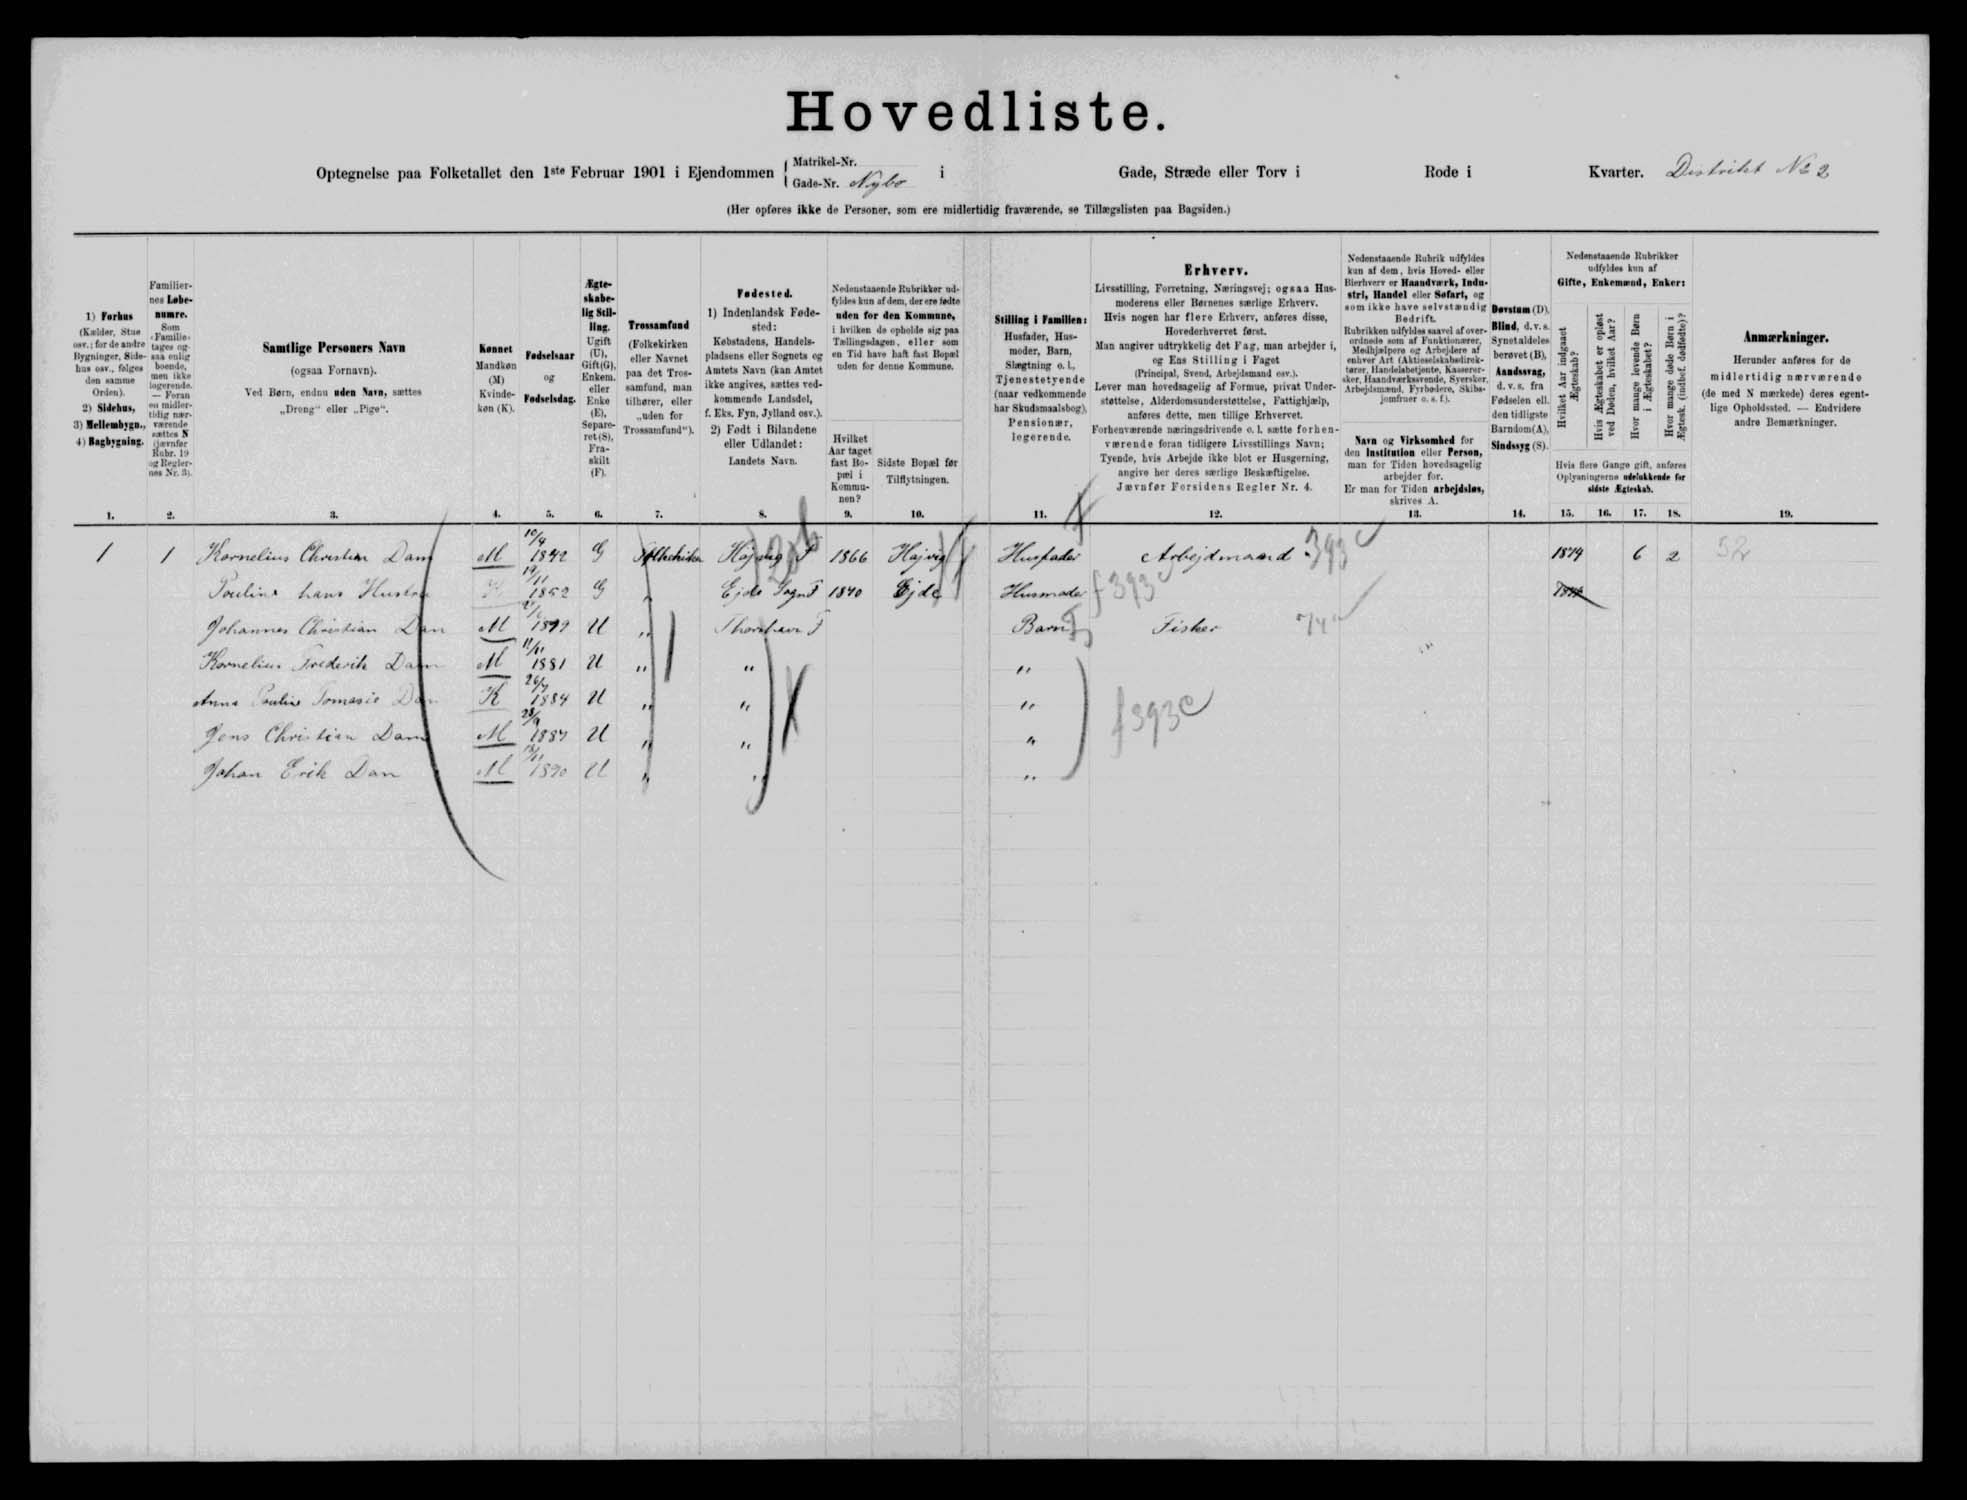 Hovedliste.
Optegnelse paa Folketallet den 1ste Februar 1901 i Ejendommen { Matrikel-Nr. Gade-Nr. Nybo i Gade, Stræde eller Torv i Rode i Kvarter. Distrikt No 2
(Her opføres ikke de Personer, som ere midlertidig fraværende, se Tillægslisten paa Bagsiden.)
1) Forhus
(Kælder, Stue
osv.; for de andre
Bygninger, Side-
hus osv., følges
den samme
Orden).
2) Sidehus,
3) Mellembygn.,
4) Bagbygning.
Familier-
nes Løbe-
numre.
Som
"Familie"
tages og-
saa enlig
boende,
men ikke
logerende.
— Foran
en midler-
tidig nær-
værende
sættes N
(jævnfør
Rubr. 19
og Regler-
nes Nr. 3).
Samtlige Personers Navn
(ogsaa Fornavn).
Ved Børn, endnu uden Navn, sættes
„Dreng“ eller „Pige“.
Kønnet
Mandkøn
(M)
Kvinde-
køn (K).
Fødselsaar
og
Fødselsdag.
Ægte-
skabe-
lig Stil-
ling.
Ugift
(U),
Gift(G),
Enkem.
eller
Enke
(E),
Separe-
ret (S),
Fra-
skilt
(F).
Trossamfund
(Folkekirken
eller Navnet
paa det Tros-
samfund, man
tilhører, eller
„uden for
Trossamfund“).
Fødested.
1) Indenlandsk Føde-
sted:
Købstadens, Handels-
pladsens eller Sognets og
Amtets Navn (kan Amtet
ikke angives, sættes ved-
kommende Landsdel,
f. Eks. Fyn, Jylland osv.).
2) Født i Bilandene
eller Udlandet:
Landets Navn.
Nedenstaaende Rubrikker ud-
fyldes kun af dem, der ere fødte
uden for den Kommune,
i hvilken de opholde sig paa
Tællingsdagen, eller som
en Tid have haft fast Bopæl
uden for denne Kommune.
Hvilket
Aar taget
fast Bo-
pæl i
Kommu-
nen?
Sidste Bopæl før
Tilflytningen.
Stilling i Familien:
Husfader, Hus-
moder, Barn,
Slægtning o. l.,
Tjenestetyende
(naar vedkommende
har Skudsmaalsbog),
Pensionær,
logerende.
Erhverv.
Livsstilling, Forretning, Næringsvej; ogsaa Hus-
moderens eller Børnenes særlige Erhverv.
Hvis nogen har flere Erhverv, anføres disse,
Hovederhvervet først.
Man angiver udtrykkelig det Fag, man arbejder i,
og Ens Stilling i Faget
(Principal, Svend, Arbejdsmand osv.).
Lever man hovedsagelig af Formue, privat Under-
støttelse, Alderdomsunderstøttelse, Fattighjælp,
anføres dette, men tillige Erhvervet.
Forhenværende næringsdrivende o. l. sætte forhen-
værende foran tidligere Livsstillings Navn;
Tyende, hvis Arbejde ikke blot er Husgerning,
angive her deres særlige Beskæftigelse.
Jævnfør Forsidens Regler Nr. 4.
Nedenstaaende Rubrik udfyldes
kun af dem, hvis Hoved- eller
Bierhverv er Haandværk, Indu-
stri, Handel eller Søfart, og
som ikke have selvstændig
Bedrift.
Rubrikken udfyldes saavel af over-
ordnede som af Funktionærer,
Medhjælpere og Arbejdere af
enhver Art (Aktieselskabsdirek-
tører, Handelsbetjente, Kasserer-
sker, Haandværkssvende, Syersker,
Arbejdsmænd, Fyrbødere, Skibs-
jomfruer o. s. f.).
Navn og Virksomhed for
den Institution eller Person,
man for Tiden hovedsagelig
arbejder for.
Er man for Tiden arbejdsløs,
skrives A.
Døvstum (D),
Blind, d. v. s.
Synet aldeles
berøvet (B),
Aandssvag,
d. v. s. fra
Fødselen ell.
den tidligste
Barndom(A),
Sindssyg (S).
Nedenstaaende Rubrikker
udfyldes kun af
Gifte, Enkemænd, Enker:
Hvilket Aar indgaaet
Ægteskab?
Hvis Ægteskabet er opløst
ved Døden, hvilket Aar?
Hvor mange levende Børn
i Ægteskabet?
Hvor mange døde Børn i
Ægtesk. (indbef. dødfødte)?
Hvis flere Gange gift, anføres
Oplysningerne udelukkende for
sidste Ægteskab.
Anmærkninger.
Herunder anføres for de
midlertidig nærværende
(de med N mærkede) deres egent-
lige Opholdssted. — Endvidere
andre Bemærkninger.
1. 2. 3. 4. 5. 6. 7. 8. 9. 10. 11. 12. 13. 14. 15. 16. 17. 18. 19.
1 1 Kornelius Christian Dam M 10/4 1842 G Folkekirken Højvig F 1866 Højvig Husfader Arbejdmand 393 c 1874 6 2 52
Pouline hans Hustru K 1852 G " Ejde Sogn F 1870 Ejde Husmoder f 393 c
Johannes Christian Dam M U " Thorshavn F Barn Fisker
Kornelius Frederik Dam M 11/11 1881 U " " "
Anna Pouline Tomasie Dam K 26/7 1884 U " " "
Jens Christian Dam M 28/9 1887 U " " " f 393 c
Johan Erik Dam M 1890 U " " "